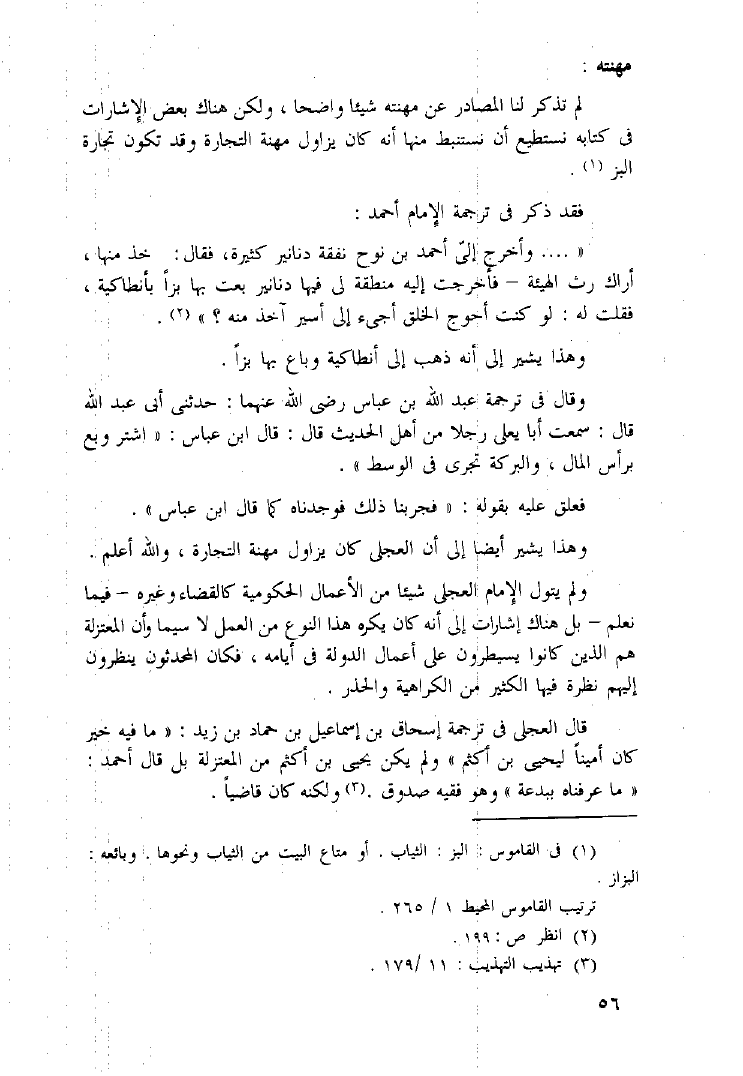 مهنته :
لم تذكر لنا المصادر عن مهنته شيئا واضحا ، ولكن هناك بعض الإشارات
فى كتابه نستطيع أن نستنبط منها أنه كان يزاول مهنة التجارة وقد تكون تجارة
البز (١) .
فقد ذكر فى ترجمة الإمام أحمد :
« .... وأخرج إلىّ أحمد بن نوح نفقة دنانير كثيرة، فقال: خذ منها ،
أراك رث الهيئة – فأخرجت إليه منطقة لى فيها دنانير بعت بها بزاً بأنطاكية ،
فقلت له : لو كنت أحوج الخلق أجىء إلى أسير آخذ منه ؟ » (٢) .
وهذا يشير إلى أنه ذهب إلى أنطاكية وباع بها بزاً .
وقال فى ترجمة عبد الله بن عباس رضى الله عنهما : حدثنى أبى عبد الله
قال : سمعت أبا يعلى رجلا من أهل الحديث قال : قال ابن عباس : « اشتر وبع
برأس المال ، والبركة تجرى فى الوسط » .
فعلق عليه بقوله : « فجربنا ذلك فوجدناه كما قال ابن عباس » .
وهذا يشير أيضا إلى أن العجلى كان يزاول مهنة التجارة ، والله أعلم .
ولم يتول الإمام العجلى شيئا من الأعمال الحكومية كالقضاء وغيره – فيما
نعلم – بل هناك إشارات إلى أنه كان يكره هذا النوع من العمل لا سيما وأن المعتزلة
هم الذين كانوا يسيطرون على أعمال الدولة فى أيامه ، فكان المحدثون ينظرون
إليهم نظرة فيها الكثير من الكراهية والحذر .
قال العجلى فى ترجمة إسحاق بن إسماعيل بن حماد بن زيد : « ما فيه خير
كان أميناً ليحيى بن أكثم » ولم يكن يحيى بن أكثم من المعتزلة بل قال أحمد :
« ما عرفناه ببدعة » وهو فقيه صدوق .(٣) ولكنه كان قاضياً .
(١) فى القاموس : البز : الثياب . أو متاع البيت من الثياب ونحوها . وبائعه :
البزاز .
ترتيب القاموس المحيط ١ / ٢٦٥ .
(٢) انظر ص : ١٩٩ .
(٣) تهذيب التهذيب : ١١ /١٧٩ .
٥٦